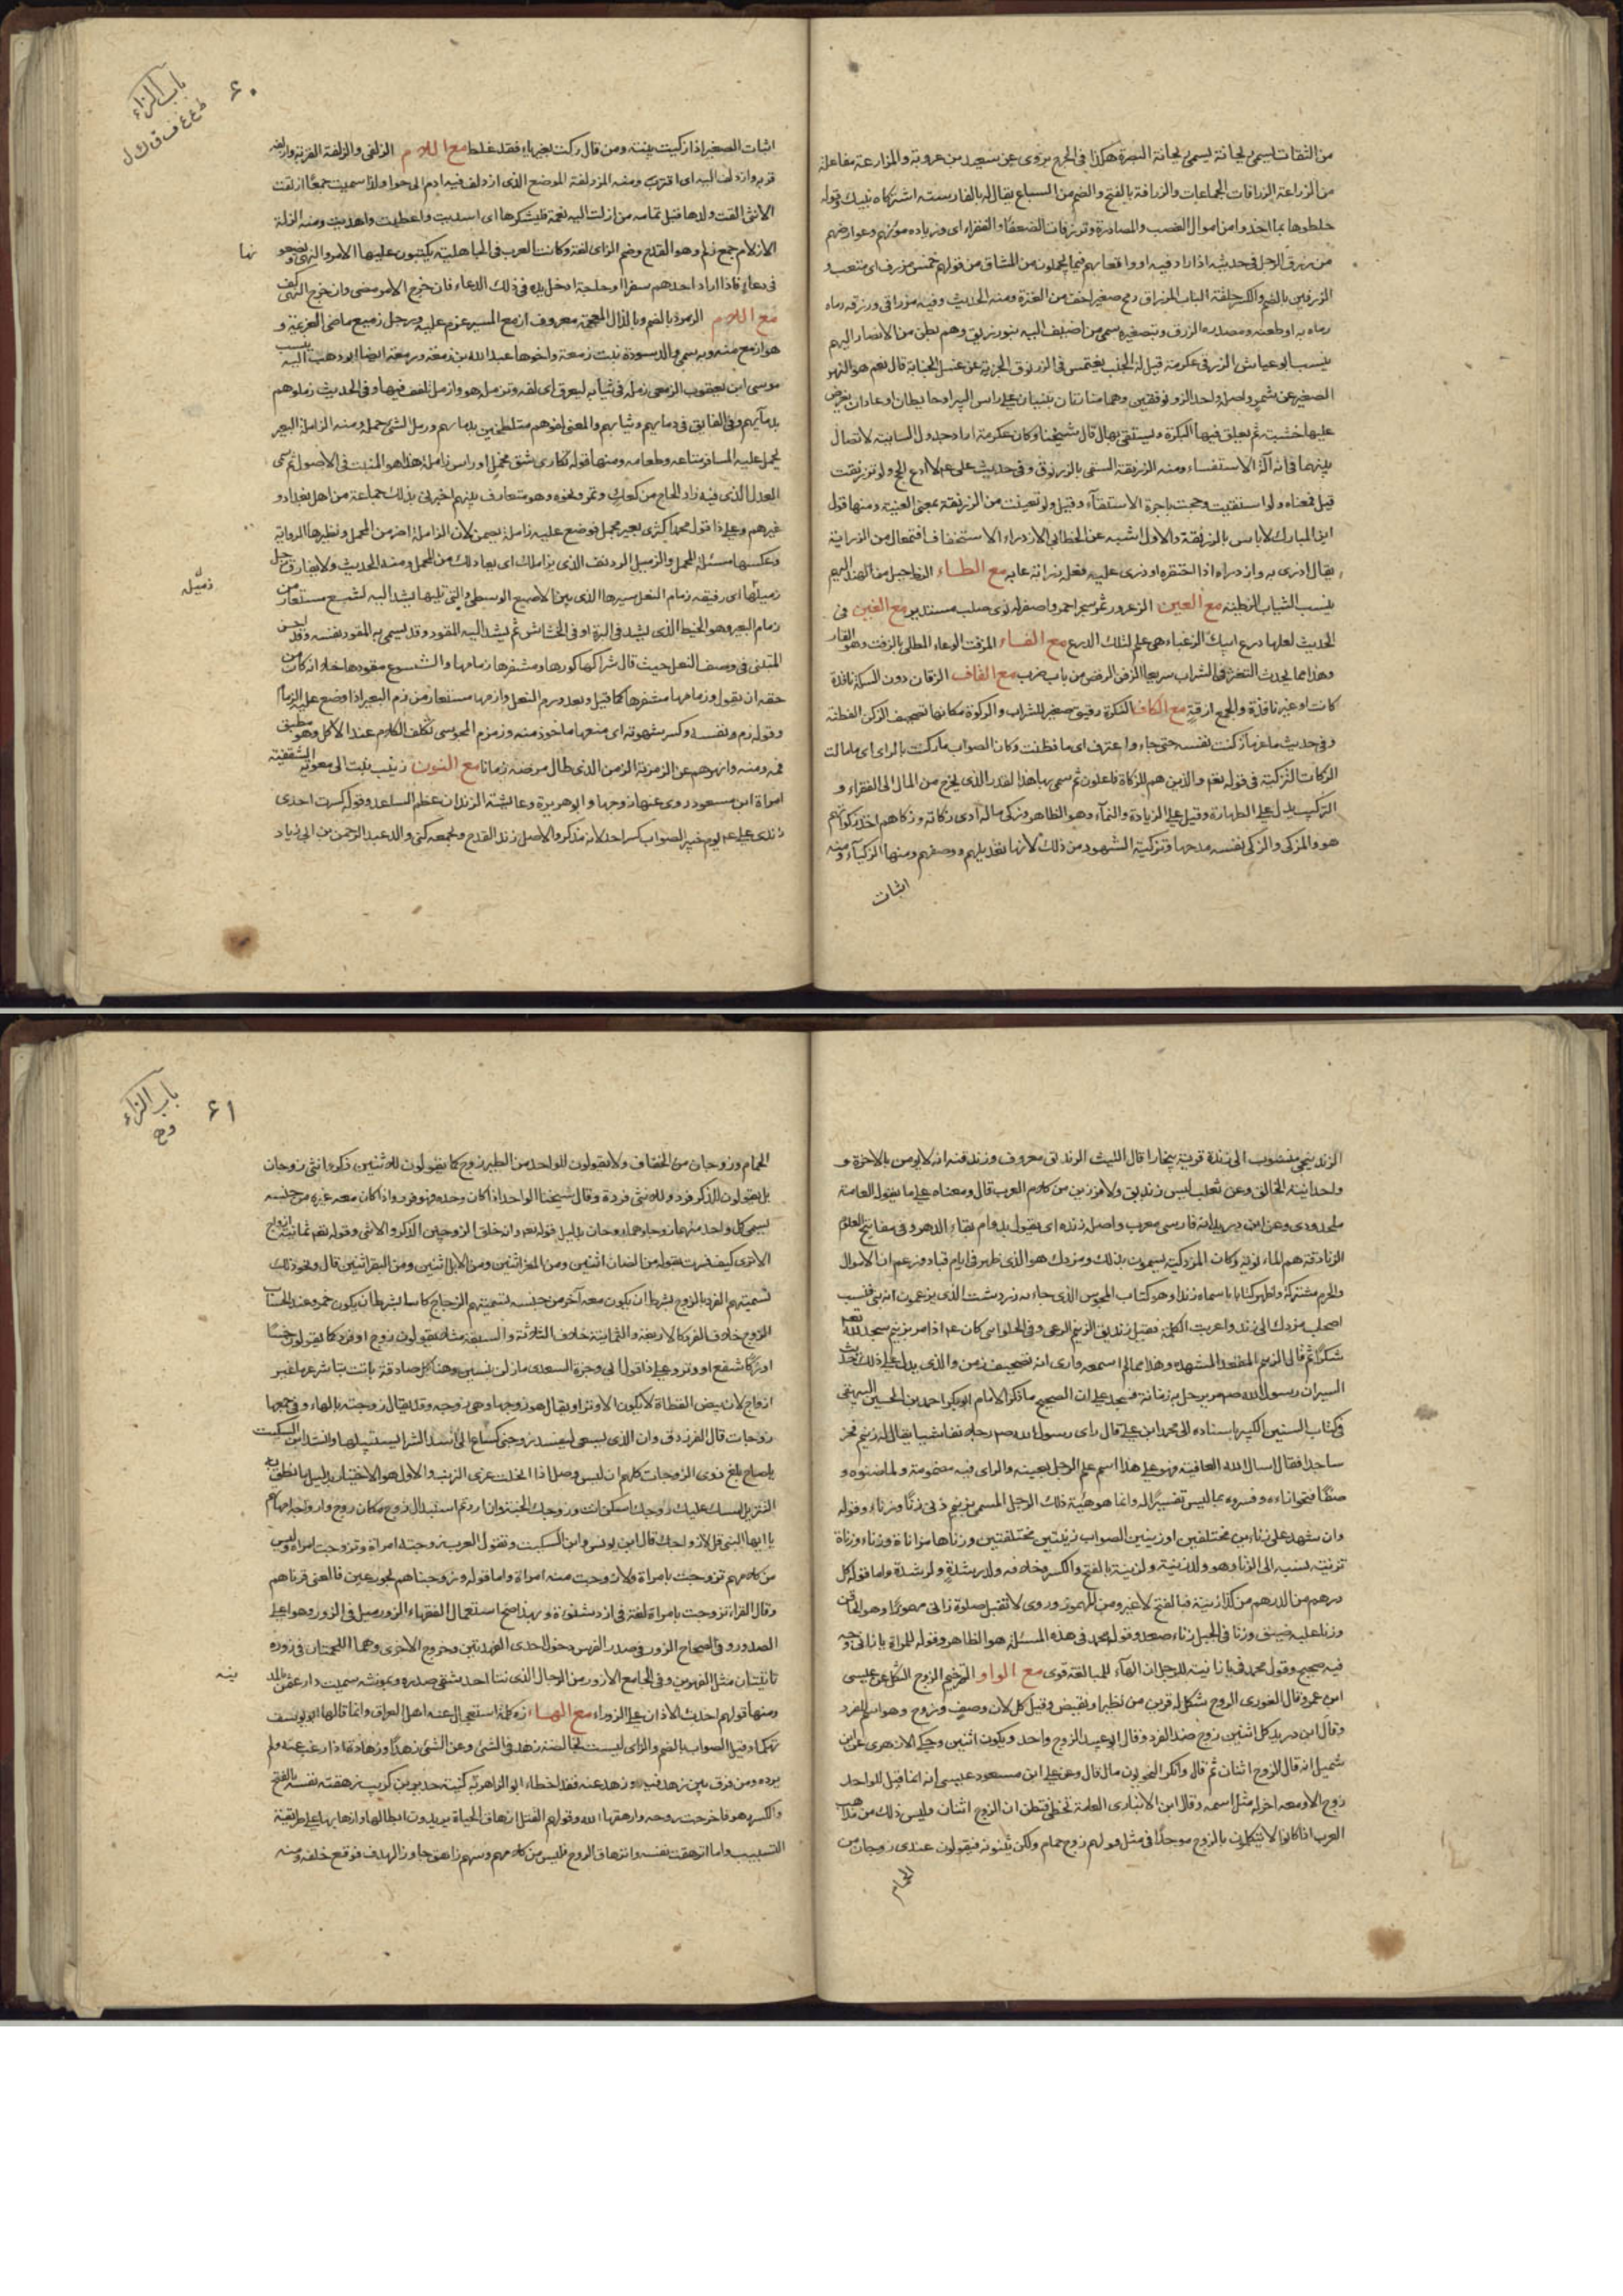 من الثقات يسمى لجانة يسمى لجانة البصرة هكذا في الجرح يروى عن سعيد بن عروبة والمزارعة مفاعلة
من الزراعة الزرافات الجماعات والزرافة بالفتح والضم من السباع يقال له بالفارسية اشتركاو پلنك وقوله
خلطوها بما اخذوا من اموال الغصب والمصادرة الضعفاء والفقراء اى وزيادة مؤنهم وعوارضهم
من زرف الرجل في حديثه اذا زاد فيه
الزرفين بالضم والكسر حلقة الباب المزراق رمح صغير اخف من العنزة ومنه الحديث وفيه مزراقي وزرقه رماه
رماه به او طعنه ومصدره الزرق وبتصغيره سمى من اضيف اليه بنو زريق وهم بطن من الانصار اليهم
ينسب ابو عياش الزرقي عكرمة قيل له الجنب يغتمس في الزرنوق اتجزيه عن غسل الجنابة قال نعم هو النهر
الصغير عن شمر واصله واحد الزرنوقين وهما منارتان تبنيان على راس البير او حايطان او عودان يعرض
عليها خشبة ثم يعلق فيها البكرة ويستقى بها قال شيخنا وكان عكرمة اراد جدول السانية لاتصال
بينهما في انه آلة الاستقاء ومنه الزرنقة السقى بالزرنوق وفي حديث على لا ادع الحج ولو تزرنقت
قيل معناه ولو استقيت وحججت باجرة الاستقآء وقيل ولو تعينت من الزرنقة بمعنى العينة ومنها قول
ابن المبارك لا باس بالزرنقة والاول اشبه عن الخطابى الازدراء الاستخفاف افتعال من الزراية
يقال ازرى به وازدراه اذا احتقره وزرى عليه فعله زراية عابه مع الطاء الزط جيل من الهند اليهم
ينسب الثياب الزطية مع العين الزعرور ثمر شجر احمر واصفر له نوى صلب مستدير مع الغين في
الحديث لعلها درع ابيك الزغباء هى علم لتلك الدرع مع الفاء المزفت الوعاء المطلى بالزفت وهو القار
وهذا مما يحدث التغير في الشراب سريعا الزفن الرقص من باب ضرب مع القاف الزقاق دون السكة نافذة
كانت او غير نافذة والجمع ازقة مع الكاف الزكرة زقيق صغير للشراب والركوة مكانها تصحيف الزكن الفطنة
وفي حديث ماعز ما زكنت نفسه حتى جاء واعترف اى ما فطنت وكان الصواب ما ركنت بالراى اى ما مالت
الزكاة التزكية في قوله تعالى والذين هم للزكاة فاعلون ثم سمى بها هذا القدر الذى يخرج من المال الى الفقراء و
التركيب يدل على الطهارة وقيل على الزيادة والنمآء وهو الظاهر وزكى ماله ادى زكاته وزكاهم اخذ زكواتهم
هو والمزكى والزكى نفسه مدحها وتزكية الشهود من ذلك لانها تعديلهم ووصفهم ومنها ازكياء ومنه
اثبات
باب الزاء
ط ع غ ف ق ك ل
۶۰
اثبات الصغير اذا زكيت بينته ومن قال زكت بغير ياء فقد غلط مع اللام الزلفى والزلفة القربة وازلفه
قربه وازدلف اليه اى اقترب ومنه المزدلفة الموضع الذى ازدلف فيه ادم الى حوا ولذا سميت جمعا ازلقت
الانثى القت ولدها قبل تمامه من ازلت اليه نعمة فليشكرها اى اسديت واعطيت واهديت ومنه الزلة
الازلام جمع زلم وهو القدح وضم الزاى لغة وكانت العرب في الجاهلية يكتبون عليها الامر والنهى
نها
في دعاء فاذا اراد احدهم سفرا او حاجة ادخل يده في ذلك الدعاء فان خرج الامر مضى وان خرج النهى كف
مع اللام الزمرد بالضم وبالذال المعجمة معروف ازمع المسير عزم عليه ورجل زميع ماضى العزيمة و
هو ازمع منه وبه سمى والد سودة بنت زمعة واخوها عبدالله بن زمعة وزمعة ايضا ابو وهب اليه ينسب
موسى ابن يعقوب الزمعى زمله في ثيابه ليعرق اى لفه وتزمل هو وازمل تلفف فيها وفي الحديث زملوهم
بدمائهم وفي الفايق في دمايهم وثيابهم والمعنى لفوهم متلطخين بدمايهم وزمل الشئ حمله ومنه الزاملة البعير
يحمل عليه المسافر متاعه وطعامه ومنها قوله تكارى شق محمل او راس زاملة هذا هو المثبت في الاصول ثم سمى
العدل الذى فيه زاد الحاج من كعك وتمر ونحوه وهو متعارف بينهم اخبرنى بذلك جماعة من اهل بغداد و
غيرهم وعلى ذا قول محمد اكترى بعير محمل فوضع عليه زاملة يضمن لان الزاملة اضر من المحمل ونظيرها الراوية
وعكسها مسئلة المحمل والزميل الرديف الذى يزاملك اى يعادلك من المحمل ومنه الحديث ولا يفارق رجل
زميله
زميلها اى رفيقه زمام النعل سيرها الذى بين الاصبع الوسطى والتى تليها يشد اليه الشسع مستعار من
زمام البعير وهو الخيط الذى يشد في البرة او في الخشاش ثم يشد اليه المقود وقد يسمى به المقود نفسه وقد احسن
المتنبى في وصف النعل حيث قال شراكها كورها ومشفرها زمامها والشسوع مقودها خلا انه كان من
حقه ان يقول وزمامها مشفرها كما قيل وبعده زم النعل وازمها مستعار من زم البعير اذا وضع عليه الزمام
وقوله زم ونفسه وكسر شهوته اى منعها ماخوذ منه وزمزم المجوسى تكلف الكلام عند الاكل وهو مطبق
فمه ومنه وانهوهم عن الزمزمة الزمن الذى طال مرضه زمانا مع النون زينب بنت ابى معوية الثقفية
امراة ابن مسعود روى عنها زوجها وابو هريرة وعايشة الزندان عظم الساعد وقوله كسرت احدى
زندى على يوم خيبر الصواب كسر احد لانه مذكر والاصل زند القدح وبجمعه كنى والد عبد الرحمن بن ابى زياد
الزندنيجى منسوب الى زندة قرية ببخارا قال الليث الزنديق معروف وزندقته انه لا يومن بالاخرة و
وحدانية الخالق وعن ثعلب ليس زنديق ولا فرزين من كلام العرب قال ومعناه على ما يقول العامة
ملحد ودهرى وعن ابن دريد انه فارسى معرب واصله زنده اى يقول بدوام بقاء الدهر وفي مفاتيح العلوم
الزنادقة هم المانوية وكان المزدكية يسمون بذلك ومزدك هو الذى ظهر في ايام قباد وزعم ان الاموال
والحرم مشتركة واظهر كتابا سماه زندا وهو كتاب المجوس الذى جاء به زردشت الذى يزعمون انه نبى فنسب
اصحاب مزدك الى زند واعربت الكلمة فقيل زنديق الزنيم الدعى وفي الحلوانى كان اذا مر بزنيم سجد لله تعالى
شكرا ثم قال الزنيم المقعد المشوه وهذا مما لم اسمعه وارى انه تصحيف زمن والذى يدل على ذلك حديث
السير ان رسول الله صم مر برجل به زمانة فسجد على ان الصحيح ما ذكر الامام ابو بكر احمد بن الحسين البيهقى
في كتاب السنن الكبير باسناده الى محمد ابن على قال راى رسول الله صم رجلا نغاشيا يقال له زنيم فخر
ساجدا فقال اسال الله العافية وهو على هذا اسم علم الرجل بعينه والراى فيه مضمومة
وان شهد على زناءين مختلفين او زنيين الصواب زنيتين مختلفتين وزناها مزاناة وزناء وزناة
تزنية نسبه الى الزنا وهو ولد زنية ولزنية بالفتح والكسر وخلافه ولد رشدة ولرشدة واما قوله كل
درهم من الدرهم من كذا زنية فبالفتح لا غير ومن المهموز وروى لا تقبل صلوة زانئ مهموزا وهو الحاقن
وزنا عليه ضيق وزنا في الجبل زناء صعد وقول محمد في هذه المسئلة هو الظاهر وقوله للمراة يا زانى وجه
فيه صحيح وقول محمد في يا زانية للرجل ان الهآء للمبالغة قوى مع الواو الزوج الشكل عن عيسى
ابن عمر وقال الغورى الزوج شكل له قرين من نظير او نقيض وقيل كل لون وصنف زوج وهو اسم للفرد
وقال ابن دريد كل اثنين زوج ضد الفرد وقال ابو عبيد الزوج واحد ويكون اثنين وحكى الازهرى عن ابن
شميل انه قال الزوج اثنان ثم قال وانكر النحويون ما قال وعن على ابن مسعود عيسى انه انما قيل للواحد
زوج الاومعه اخر له مثل اسمه وقال ابن الانبارى العامة تخطئ فتظن ان الزوج اثنان وليس ذلك من مذاهب
العرب اذ كانوا لا يتكلمون بالزوج موحدا في مثل قولهم زوج حمام ولكن يثنونه فيقولون عندى زوجان من
الحمام
باب الزاء
و ه
۶۱
الحمام وزوجان من الخفاف ولا يقولون للواحد من الطير زوج كما يقولون للاثنين ذكر وانثى زوجان
بل يقولون للذكر فرد وللانثى فردة وقال شيخنا الواحد اذا كان وحده فهو فرد واذا كان معه غيره من جنسه
يسمى كل واحد منهما زوجا وهما زوجان بدليل قوله تعالى وانه خلق الزوجين الذكر والانثى وقوله تعالى ثمانية ازواج
الا ترى كيف فسرت بقوله من الضان اثنين ومن المعز اثنين ومن الابل اثنين ومن البقر اثنين قال ونحو ذلك
تسميتهم الفرد بالزوج بشرط ان يكون معه آخر من جنسه تسميتهم الزجاج كاسا بشرط ان يكون خمر وعند الحساب
الزوج خلاف الفرد كالاربعة والثمانية خلاف الثلاثة والسبعة مثلا يقولون زوج او فرد كما يقولون خسا
او زكا شفع او وتر وعلى ذا قول ابى وجزة السعدى ما زلن ينسبن وهنا كل صادقة باتت تباشر عرما غير
ازواج لان بيض القطاة لا يكون الا وترا ويقال هو زوجها وهى زوجه وقد يقال زوجته بالهاء وفي جمعها
زوجات قال الفرزدق وان الذى يسعى ليفسد زوجتى كساع الى اسد الشرا يستبيلها وانشد ابن السكيت
يا صاح بلغ ذوى الزوجات كلهم ان ليس وصل اذا انحلت عرى الذنب والاول هو الاختيار بدليل ما نطق به
التنزيل امسك عليك زوجك اسكن انت وزوجك الجنة وان اردتم استبدال زوج مكان زوج وازواجه امهاتهم
يا ايها النبى قل لازواجك قال ابن يونس وابن السكيت وتقول العرب زوجته امراة وتزوجت امراة وليس
من كلامهم تزوجت بامراة ولا زوجت منه امراة واما قوله وزوجناهم بحور عين فالمعنى قرناهم
وقال الفراء تزوجت بامراة لغة في ازد شنوءة وبهذا صح استعمال الفقهاء الزور ميل في الزور وهو اعلى
الصدر وفي الصحاح الزور في صدر الفرس دخول احدى الفهدتين وخروج الاخرى وهما اللحمتان في زوره
ينه
ناتيتان مثل الفهرين وفي الجامع الازور من الرجال الذى نتا احد شقى صدره وبمونثه سميت دار عثمن بالمد
ومنها قولهم احدث الاذان على الزوراء مع الهاء زه كلمة استعجال عند اهل العراق وانما قالها ابو يوسف
تهكما وقيل الصواب بالضم والزاى ليست بخالصة زهد في الشئ وعن الشئ زهدا وزهادة اذا رغب عنه ولم
يرده ومن فرق بين زهد فيه وزهد عنه فقد اخطاء ابو الزاهرية كنية حدير بن كريب زهقت نفسه بالفتح
والكسر زهوقا خرجت روحه وازهقها الله وقولهم القتل ازهاق الحياة يريدون ابطالها واذهابها على طريقة
التسبيب واما انزهقت نفسه وانزهاق الروح فليس من كلامهم وسهم زاهق جاوز الهدف فوقع خلفه ومنه